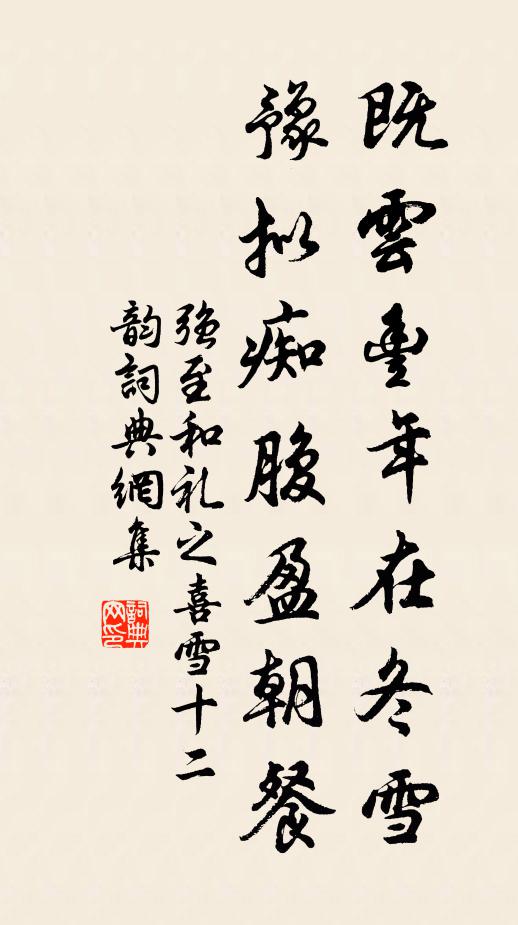 既雲豐年在冬雪
豫拟痴腹盈朝餐
強至和礼之喜雪十二
韵詞典網集
詞典网印